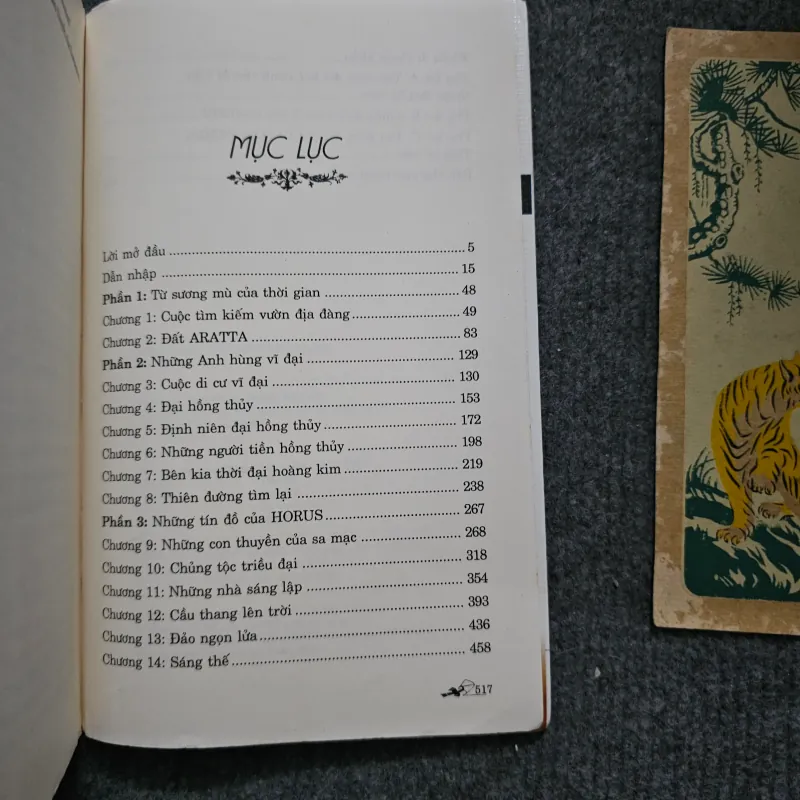 MỤC LỤC
Lời mở đầu 5
Dẫn nhập 15
Phần 1: Từ sương mù của thời gian 48
Chương 1: Cuộc tìm kiếm vườn địa đàng 49
Chương 2: Đất ARATTA 83
Phần 2: Những Anh hùng vĩ đại 129
Chương 3: Cuộc di cư vĩ đại 130
Chương 4: Đại hồng thủy 153
Chương 5: Định niên đại hồng thủy 172
Chương 6: Những người tiền hồng thủy 198
Chương 7: Bên kia thời đại hoàng kim 219
Chương 8: Thiên đường tìm lại 238
Phần 3: Những tín đồ của HORUS 267
Chương 9: Những con thuyền của sa mạc 268
Chương 10: Chủng tộc triều đại 318
Chương 11: Những nhà sáng lập 354
Chương 12: Cầu thang lên trời 393
Chương 13: Đảo ngọn lửa 436
Chương 14: Sáng thế 458
517